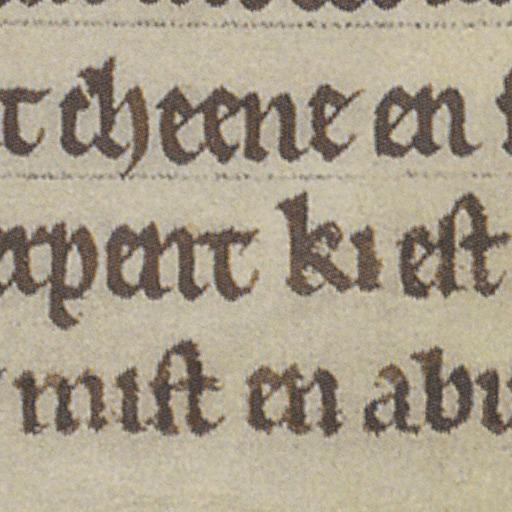 t cheene en
erpent ki est
mist en abu